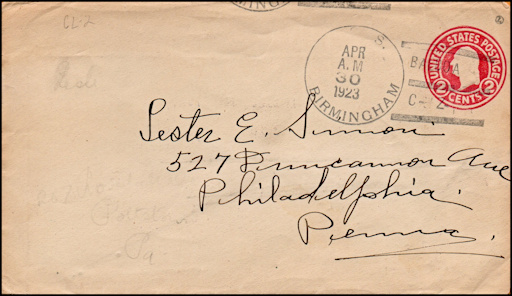 CL-2
S.
APR
A.M
30
1923
BIRMINGHAM
UNITED STATES POSTAGE
2 CENTS 2
Lester E. Simon
527 Duncannon Ave
Philadelphia.
Penna.
Pa